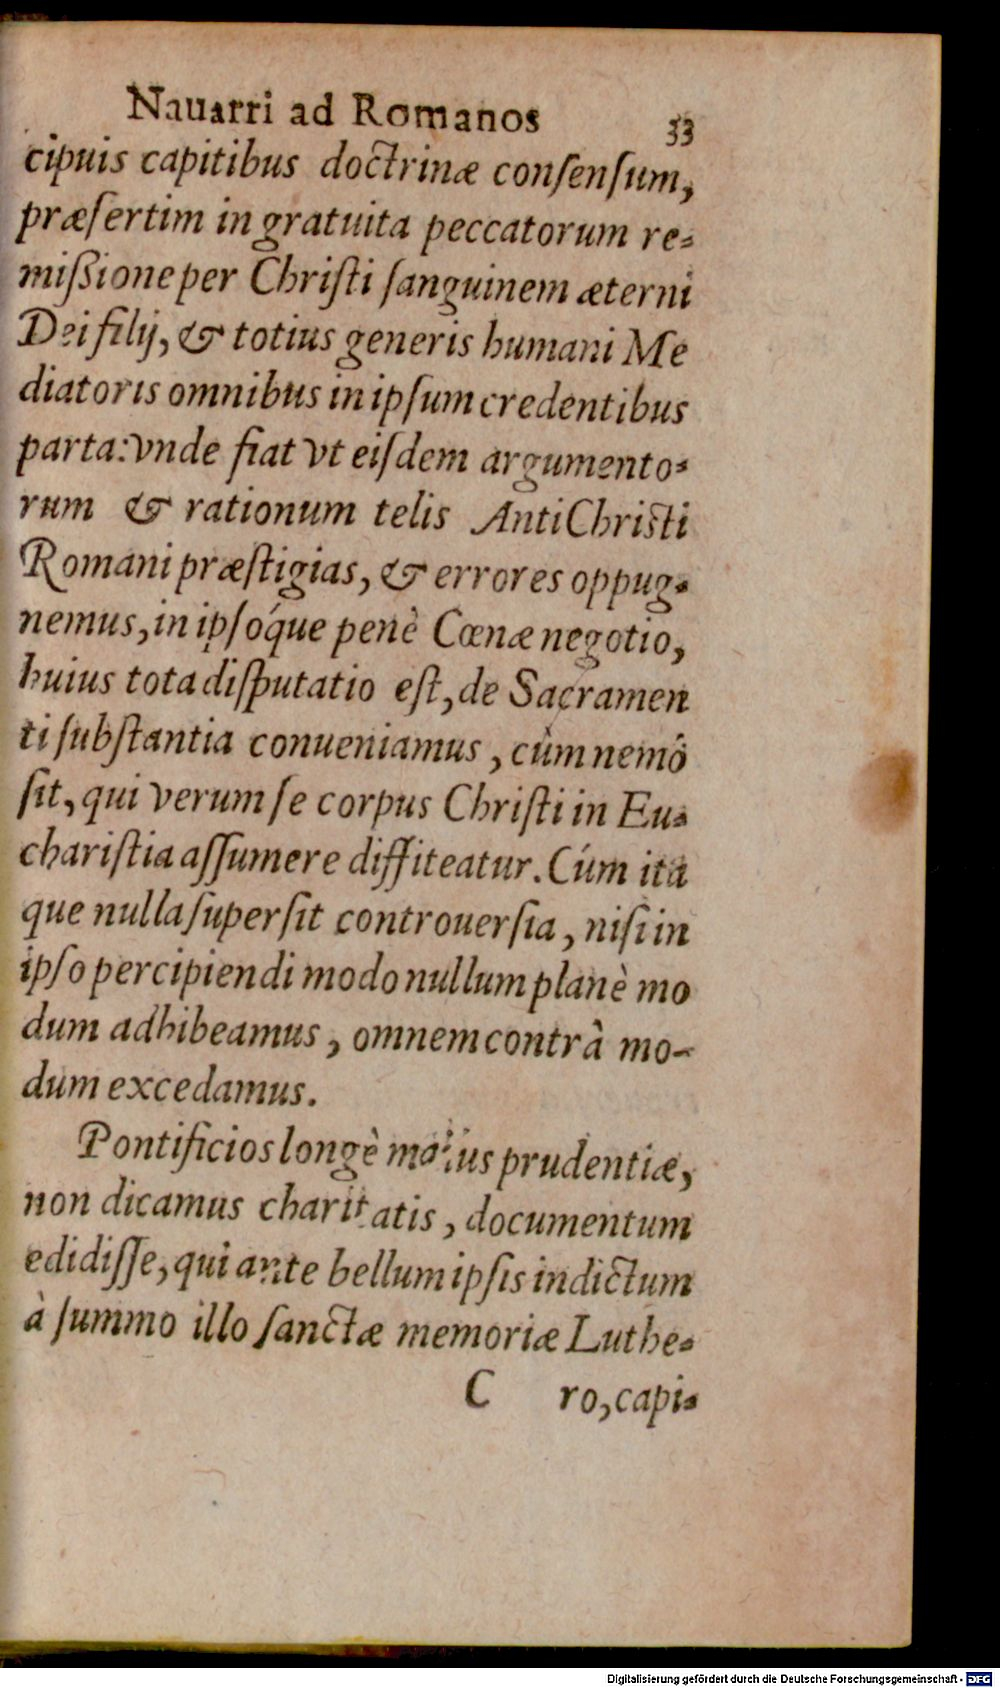 Nauarri ad Romanos 33
cipuis capitibus doctrinæ conſenſum,
præſertim in gratuita peccatorum re-
mißione per Chriſti ſanguinem æterni
Dei filij, & totius generis humani Me
diatoris omnibus in ipſum credentibus
parta: vnde fiat vt eiſdem argumento-
rum & rationum telis AntiChriſti
Romani præſtigias, & errores oppug-
nemus, in ipſóque penè Cœnæ negotio,
huius tota diſputatio eſt, de Sacramen
ti ſubſtantia conueniamus, cùm nemó
ſit, qui verum ſe corpus Chriſti in Eu-
chariſtia aſſumere diffiteatur. Cúm ita
que nulla ſuperſit controuerſia, niſi in
ipſo percipiendi modo nullum planè mo
dum adhibeamus, omnem contrâ mo-
dum excedamus.
Pontificios longè maius prudentiæ,
non dicamus charitatis, documentum
edidiſſe, qui ante bellum ipſis indictum
à ſummo illo ſanctæ memoriæ Luthe-
C ro, capi-
Digitalisierung gefördert durch die Deutsche Forschungsgemeinschaft - DFG